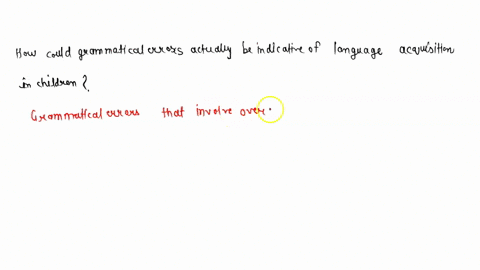 How could grammatical errors actually be indicative of language acquisition
in children?
Grammatical errors that involve over